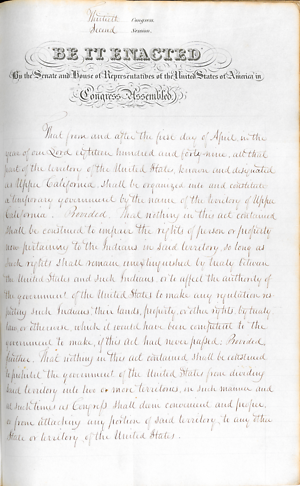 Thirtieth Congress
Second Session
BE IT ENACTED
By the Senate and House of Representatives of the United States of America in
Congress Assembled
That from and after the first day of April in the
year of our Lord eighteen hundred and forty nine, all that
part of the territory of the United States, known and designated
as Upper California, shall be organized into and constitute
a temporary government by the name of the territory of Upper
California. Provided, That nothing in this act contained
shall be construed to impair the rights of person or property
now pertaining to the Indians in said territory so long as
such rights shall remain unextinguished by treaty between
the United States and such Indians, or to affect the authority of
the government of the United States to make any regulation res
pecting such Indians, their lands, property, or other rights, by treaty,
law or otherwise, which it would have been competent to the
government to make, if this act had never passed. Provided,
further, That nothing in this act contained shall be construed
to prohibit the government of the United States from dividing
said territory into two or more territories, in such manner and
at such times as Congress shall deem convenient and proper,
or from attaching any portion of said territory, to any other
State or territory of the United States.